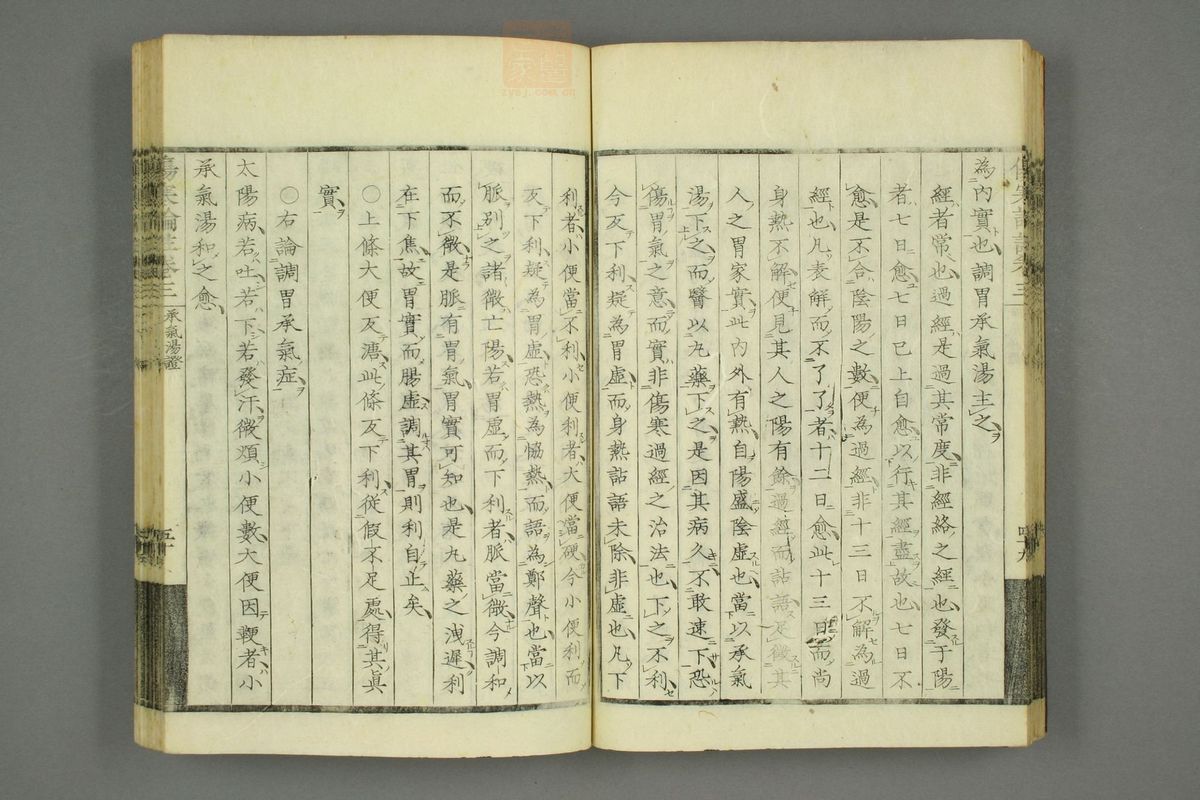 為內實也調胃承氣湯主之
經者常也過經是過其常度非經絡之經也發于陽
者七日愈七日已上自愈以行其經盡故也七日不
愈是不合陰陽之數便為過經非十三日不解為過
經也凡表解而不了了者十二日愈此十三日而尚
身熱不解便見其人之陽有餘過經而詀語足徵其
人之胃家實此內外有熱自陽盛陰虛也當以承氣
湯下之而醫以丸藥下之是因其病久不敢速下恐
傷胃氣之意而實非傷寒過經之治法也下之不利
今反下利疑為胃虛而身熱詀語未除非虛也凡下
利者小便當不利小便利者大便當硬今小便利而
反下利疑為胃虛恐熱為協熱而語為鄭聲也當以
脈别之諸微亡陽若胃虛而下利者脈當微今調和
而不微是脈有胃氣胃實可知也是丸藥之洩遲利
在下焦故胃實而腸虛調其胃則利自止矣
〇上條大便反溏此條反下利從假不足處得其真
實
〇右論調胃承氣症
太陽病若吐若下若發汗微煩小便數大便因鞕者小
承氣湯和之愈
傷寒論註卷三 承氣湯證
五十
四九
zysj.com.cn